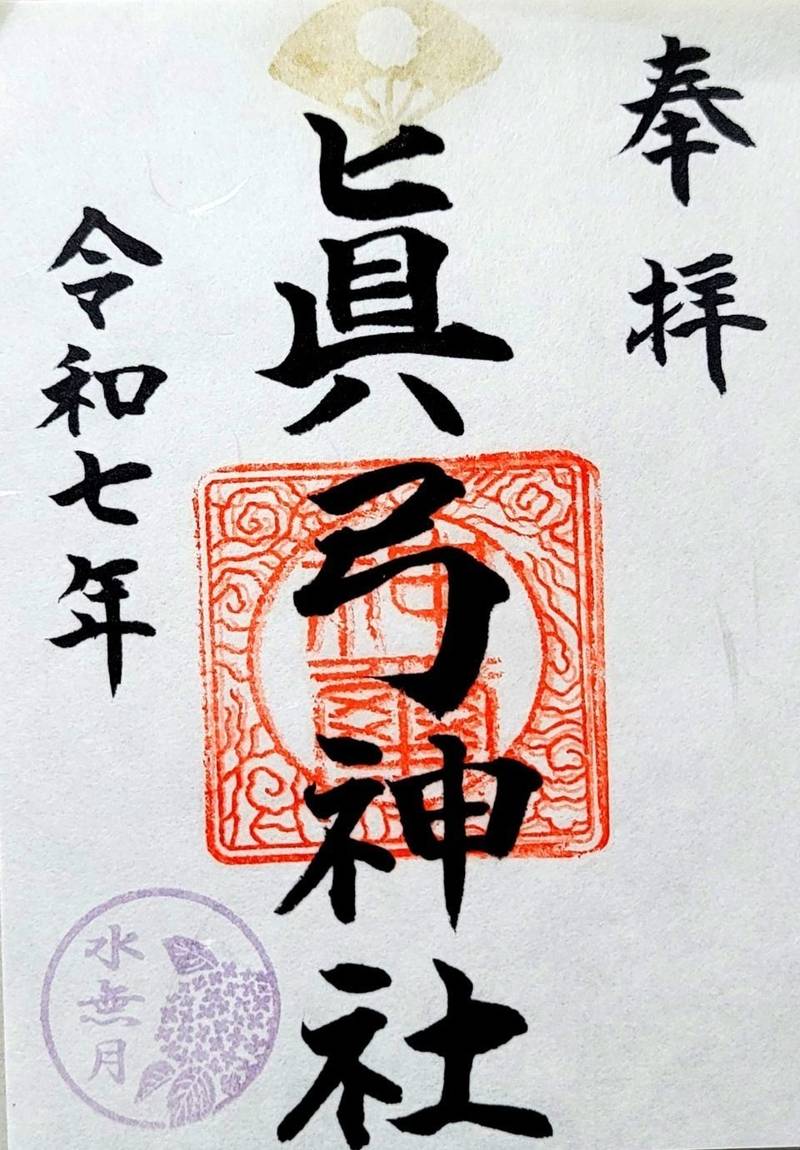 奉拝
眞弓神社
令和七年
水無月